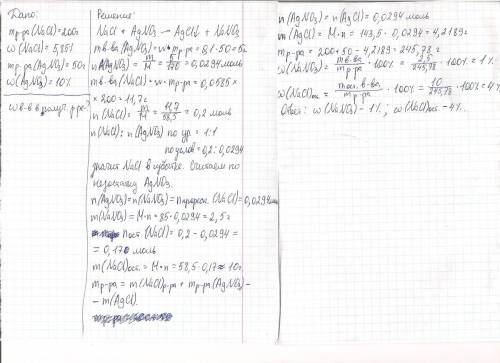 Дано:
mр-ра(NaCl)=200г
w(NaCl)=5,85%
mр-ра(AgNO₃)=50г
w(AgNO₃)=10%
w в-в в получ. р-ре?
Решение:
NaCl + AgNO₃ → AgCl↓ + NaNO₃
mв-ва(AgNO₃)=w·mр-ра=0,1·50=5г
n(AgNO₃)=m/M=5/170=0,0294моль
mв-ва(NaCl)=w·mр-ра=0,0585×
×200=11,7г
n(NaCl)=m/M=11,7/58,5=0,2 моль
n(NaCl):n(AgNO₃) по ур. = 1:1
по услов=0,2:0,0294
значит NaCl в избытке. Считаем по
недостатку AgNO₃.
n(AgNO₃)=n(NaNO₃)=nпрореаг.(NaCl)=0,0294моль
m(NaNO₃)=M·n=85·0,0294=2,5г
nост.(NaCl)=0,2-0,0294=
=0,17моль
m(NaCl)ост.=M·n=58,5·0,17≈10г.
mр-ра=m(NaCl)р-ра+mр-ра(AgNO₃)-
-m(AgCl).
n(AgNO₃)=n(AgCl)=0,0294моль
m(AgCl)=M·n=143,5·0,0294=4,2189г
mр-ра=200+50-4,2189=245,78г
w(NaNO₃)=mв-ва/mр-ра·100%=2,5/245,78·100%=1%
w(NaCl)ост=mост.в-ва/mр-ра·100%=10/245,78·100%=4%
Ответ: w(NaNO₃)-1%; w(NaCl)ост.-4%.